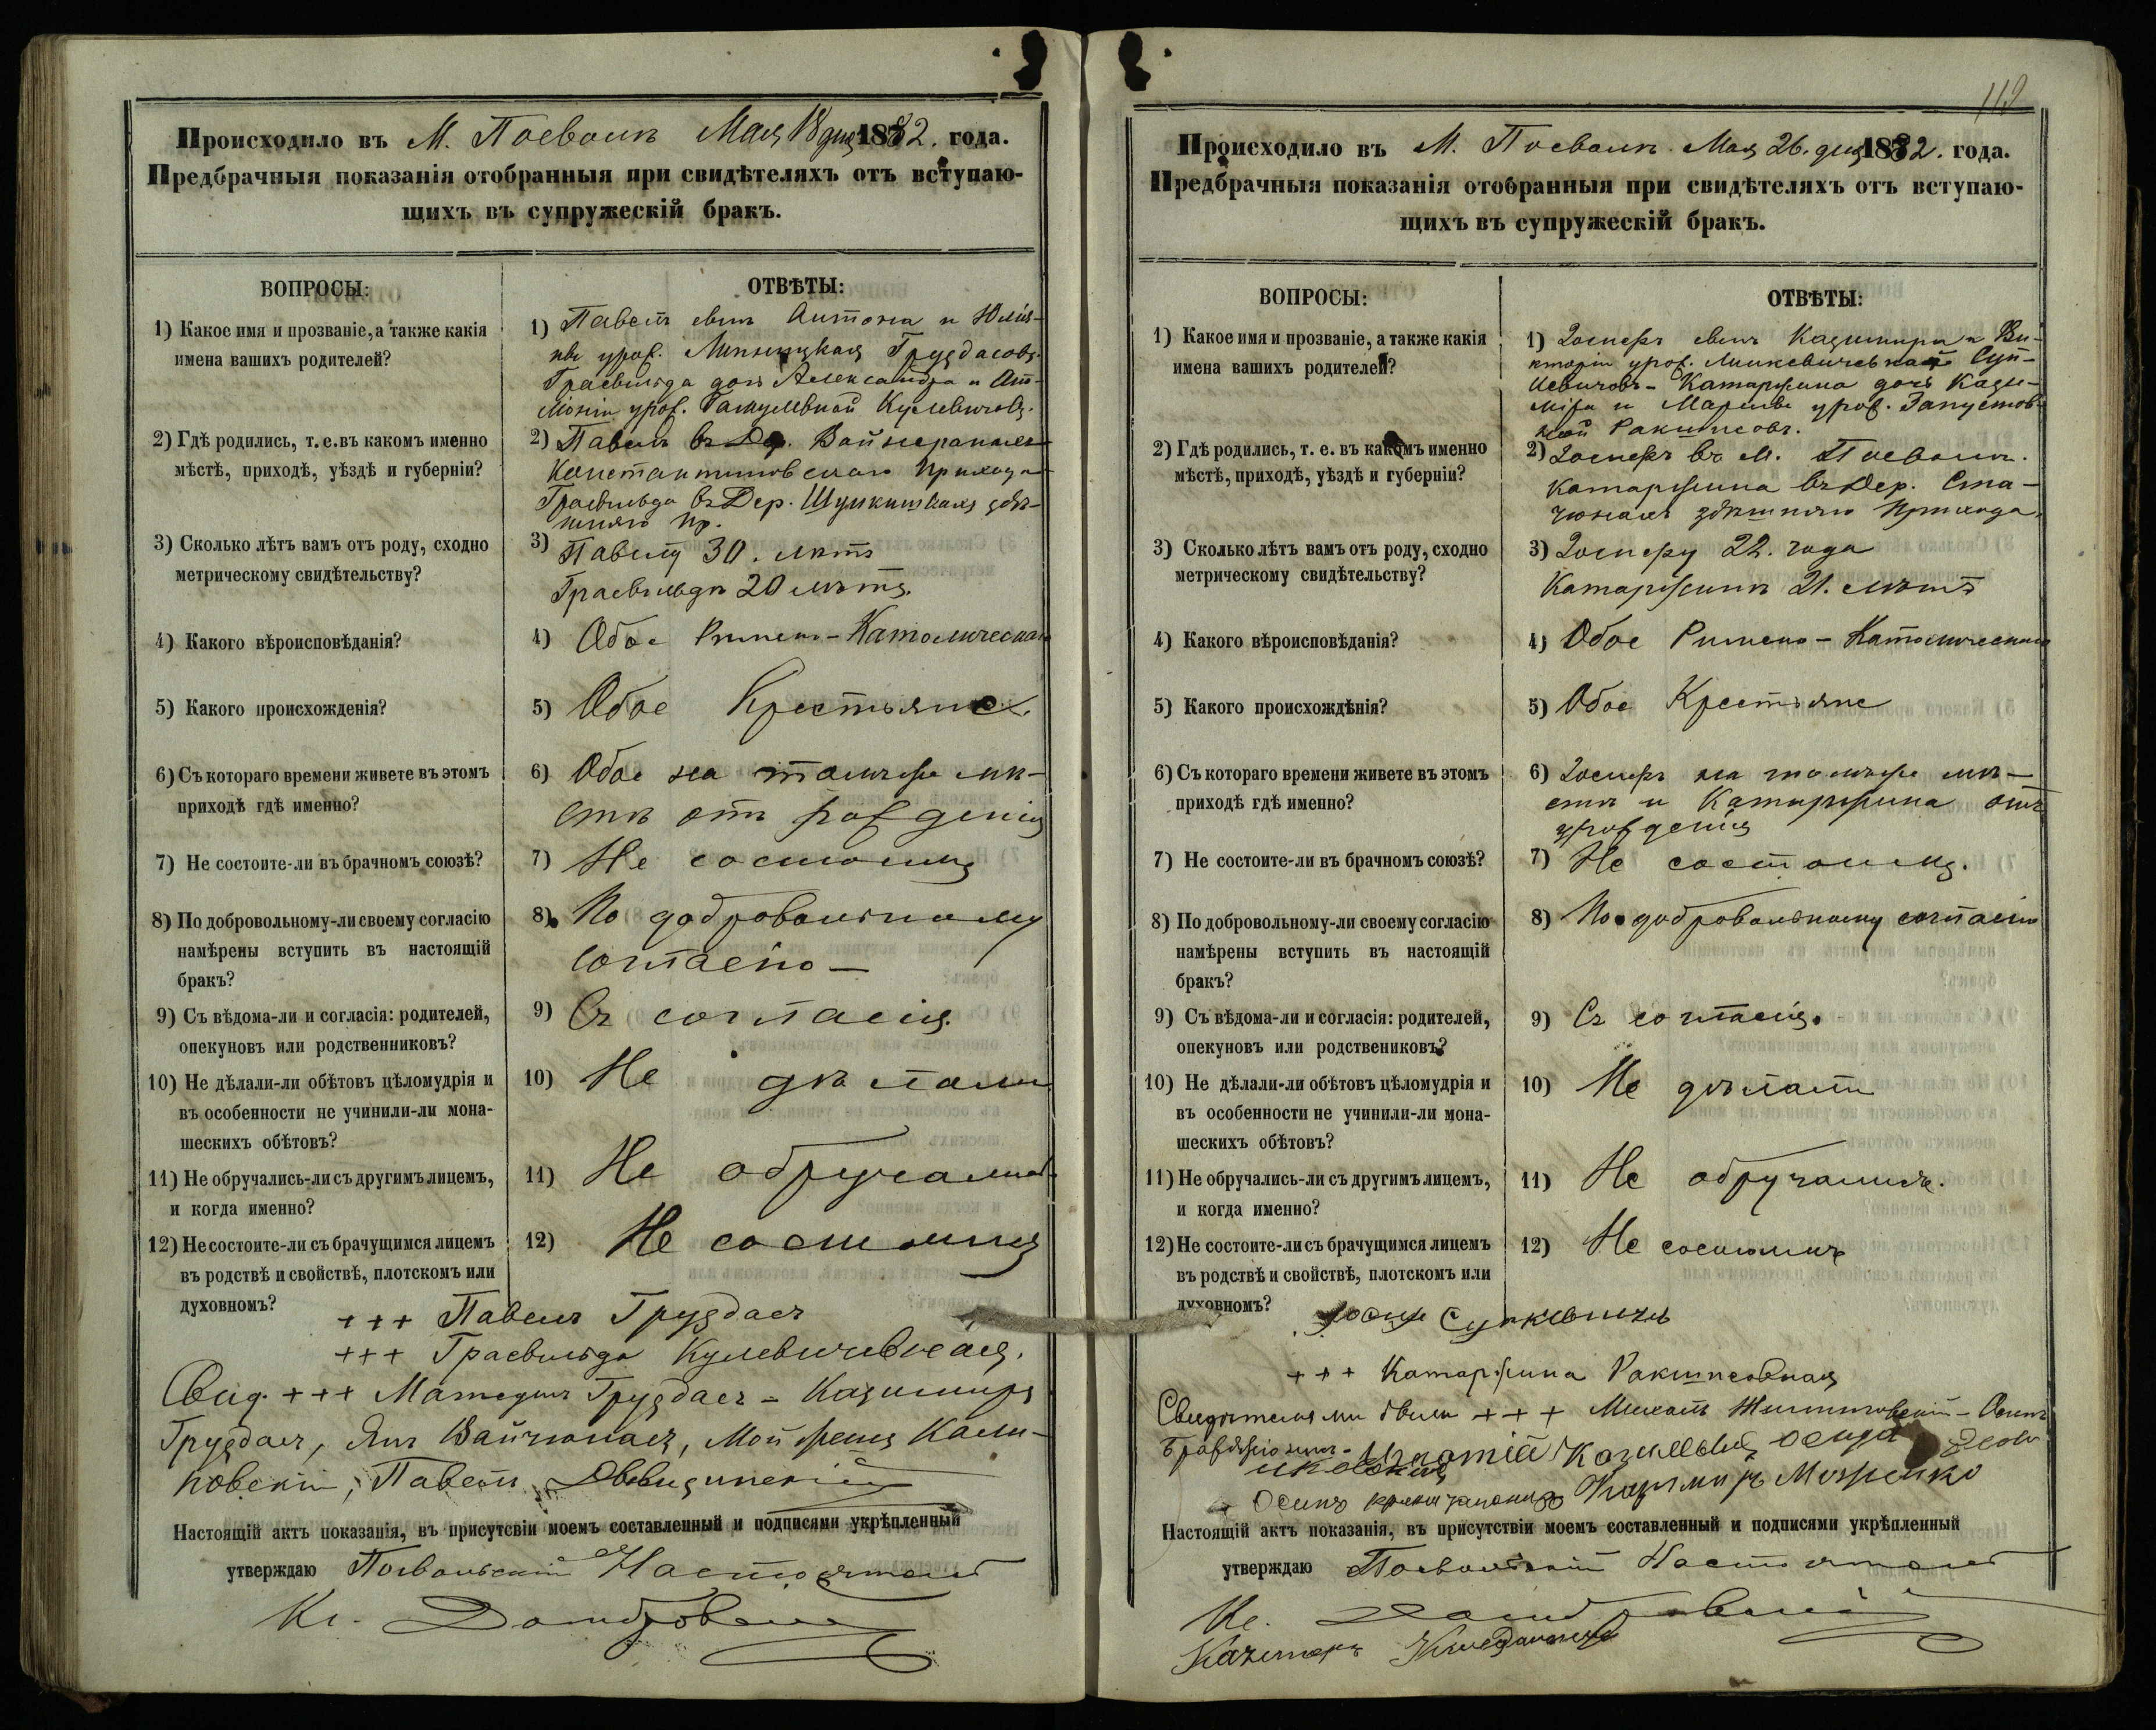 Происходило въ М. Поволь Мая 18 дня 1882. года.
Предбрачныя показанія отобранныя при свидѣтеляхъ отъ вступаю-
щихъ въ супружескій бракъ.
ВОПРОСЫ:
ОТВѢТЫ:
1) Какое имя и прозваніе, а также какія
имена вашихъ родителей?
1) Павелъ сынъ Антона и Юлія-
ны урож. Груздасовъ
Граевильда дочь Александра и
урож. Кулевичовъ.
2) Гдѣ родились, т. е. въ какомъ именно
мѣстѣ, приходѣ, уѣздѣ и губерніи?
2) Павелъ въ Дер.
Константиновскаго прихода
Граевильда въ Дер. здѣ-
шняго пр.
3) Сколько лѣтъ вамъ отъ роду, сходно
метрическому свидѣтельству?
3) Павелу 30. лѣтъ
Граевильдѣ 20 лѣтъ.
4) Какого вѣроисповѣданія?
4) Обое Римско-Католическаго
5) Какого происхожденія?
5) Обое Крестьяне.
6) Съ котораго времени живете въ этомъ
приходѣ гдѣ именно?
6) Обое на томъ же мѣ-
стѣ отъ рожденія
7) Не состоите-ли въ брачномъ союзѣ?
7) Не состоимъ
8) По добровольному-ли своему согласію
намѣрены вступить въ настоящій
бракъ?
8) По добровольному
согласію —
9) Съ вѣдома-ли и согласія: родителей,
опекуновъ или родственниковъ?
9) Съ согласія.
10) Не дѣлали-ли обѣтовъ цѣломудрія и
въ особенности не учинили-ли мона-
шескихъ обѣтовъ?
10) Не дѣлали
11) Не обручались-ли съ другимъ лицемъ,
и когда именно?
11) Не обручались
12) Не состоите-ли съ брачущимся лицемъ
въ родствѣ и свойствѣ, плотскомъ или
духовномъ?
12) Не состоимъ
+++ Павелъ Груздасъ
+++ Граевильда Кулевичевная.
Свид. +++ Матеушъ Груздасъ - Казимиръ
Груздасъ, Янъ Вайчюнасъ, Мойжешъ Кали-
новскій, Павелъ
Настоящій актъ показанія, въ присутсвіи моемъ составленный и подписями укрѣпленный
утверждаю Посвольскій Настоятель
Кс. Домбровскій
119
Происходило въ М. Посволь Мая 26. дня 1882. года.
Предбрачныя показанія отобранныя при свидѣтеляхъ отъ вступаю-
щихъ въ супружескій бракъ.
ВОПРОСЫ:
ОТВѢТЫ:
1) Какое имя и прозваніе, а также какія
имена вашихъ родителей?
1) Іосифъ сынъ Казимира и Ви-
кторіи урож. Минкевичевной Суп-
кевичовъ - Катаржина дочь Кази-
міра и Маріи урож. Запустов-
ной Ракштсовъ.
2) Гдѣ родились, т. е. въ какомъ именно
мѣстѣ, приходѣ, уѣздѣ и губерніи?
2) Іосифъ въ М. Посволь.
Катаржина въ Дер. Ста-
чюнахъ здѣшняго прихода.
3) Сколько лѣтъ вамъ отъ роду, сходно
метрическому свидѣтельству?
3) Іосифу 22. года
Катаржинѣ 21. лѣтъ
4) Какого вѣроисповѣданія?
4) Обое Римско-Католическаго
5) Какого происхождѣнія?
5) Обое Крестьяне
6) Съ котораго времени живете въ этомъ
приходѣ гдѣ именно?
6) Іосифъ на томъ же мѣ-
стѣ и Катаржина отъ
урожденія
7) Не состоите-ли въ брачномъ союзѣ?
7) Не состоимъ.
8) По добровольному-ли своему согласію
намѣрены вступить въ настоящій
бракъ?
8) По добровольному согласію
9) Съ вѣдома-ли и согласія: родителей,
опекуновъ или родствениковъ?
9) Съ согласія.
10) Не дѣлали-ли обѣтовъ цѣломудрія и
въ особенности не учинили-ли мона-
шескихъ обѣтовъ?
10) Не дѣлали
11) Не обручались-ли съ другимъ лицемъ,
и когда именно?
11) Не обручались.
12) Не состоите-ли съ брачущимся лицемъ
въ родствѣ и свойствѣ, плотскомъ или
духовномъ?
12) Не состоимъ
Іосифъ Супкевичъ
+++ Катаржина Ракштсовная
Свидѣтелями были +++ Михаилъ - Осипъ
Игнатій Осипъ
Осипъ Казимиръ
Настоящій актъ показанія, въ присутствіи моемъ составленный и подписями укрѣпленный
утверждаю Посвольскій Настоятель
Кс. Домбровскій